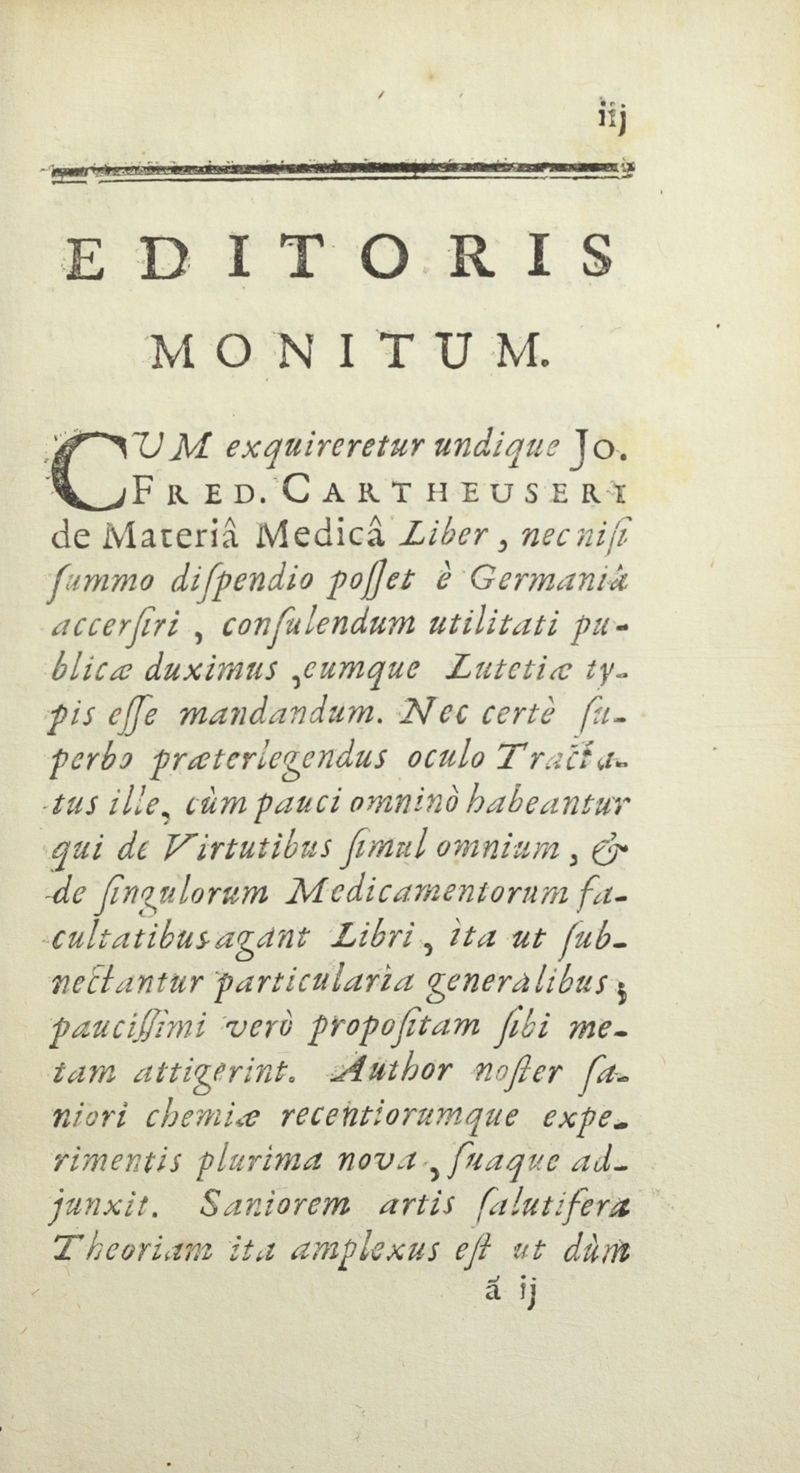 iij
EDITORIS
MONITUM.
CUM exquireretur undique Jo.
FRED. CARTHEUSERI
de Materiâ Medicâ Liber, nec niſi
ſummo diſpendio poſſet è Germaniâ
accerſiri, conſulendum utilitati pu-
blicæ duximus, eumque Lutetiæ ty-
pis eſſe mandandum. Nec certè ſu-
perbo præterlegendus oculo Tracta-
tus ille, cùm pauci omninò habeantur
qui de Virtutibus ſimul omnium, &
de ſingulorum Medicamentorum fa-
cultatibus agant Libri, ita ut ſub-
nectantur particularia generalibus;
pauciſſimi verò propoſitam ſibi me-
tam attigerint. Author noſter ſa-
niori chemiæ recentiorumque expe-
rimentis plurima nova, ſuaque ad-
junxit. Saniorem artis ſalutiferæ
Theoriam ita amplexus eſt ut dùm
ã ij